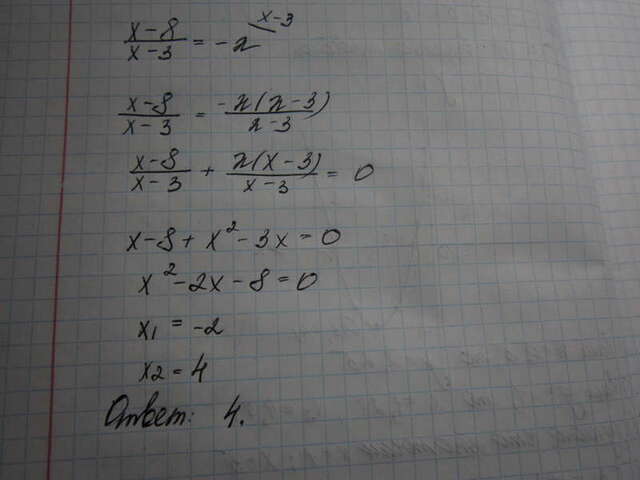 (x-8)/(x-3) = -x^(x-3
(x-8)/(x-3) = -x(x-3)/(x-3)
(x-8)/(x-3) + x(x-3)/(x-3) = 0
x-8+x²-3x=0
x²-2x-8=0
x₁ = -2
x₂ = 4
Ответ: 4.